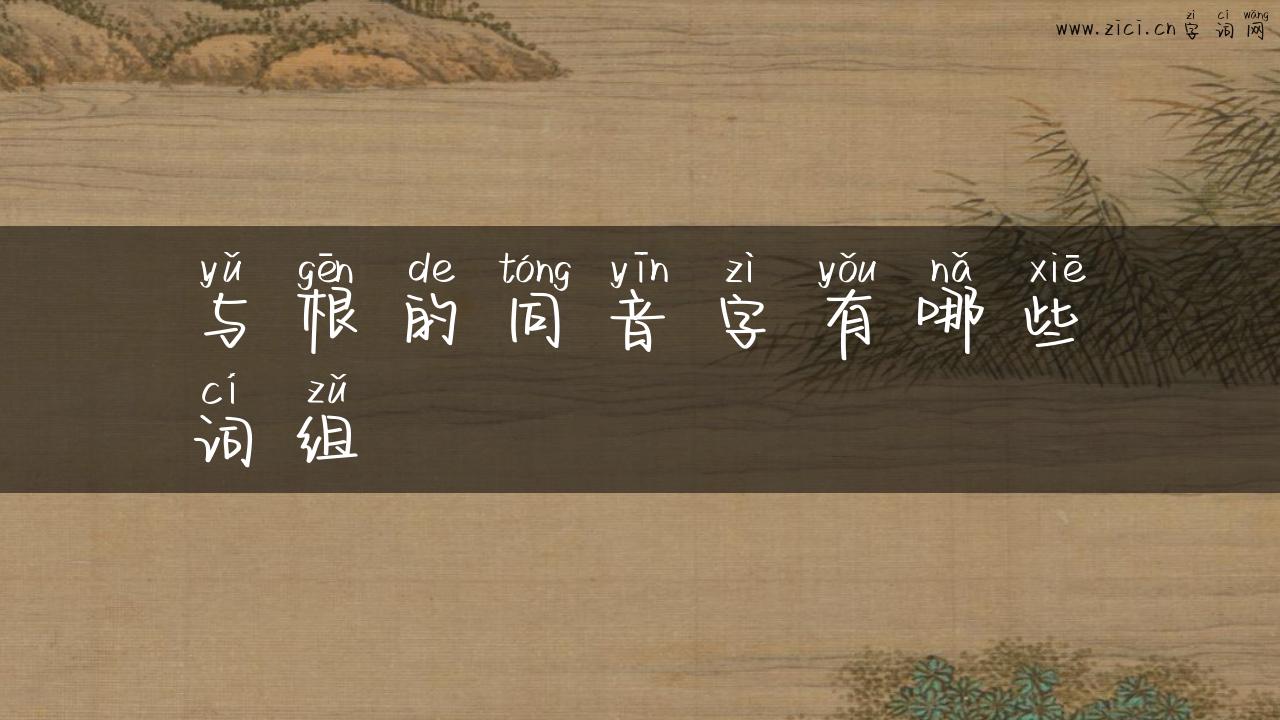 zì cí wǎng
www.zici.cn字词网
yǔ gēn de tóng yīn zì yǒu nǎ xiē
与根的同音字有哪些
cí zǔ
词组